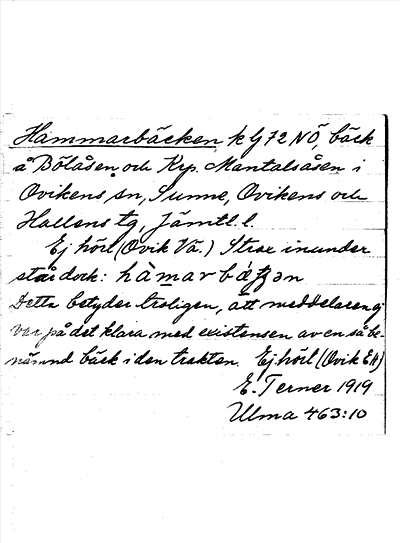 Hammarbäcken, k bl 72 NÖ, bäck
å Bölåsen och Krp. Mantalsåsen i
Ovikens sn, Sunne, Ovikens och
Hallens tg, Jämtl. l.
Ej hört (Ovik Vä.) Strax inunder
står dock: hàmarbɛ́tʃən
Detta betyder troligen, att meddelaren ej
var på det klara med existensen av en så be-
nämnd bäck i den trakten. Ej hört (Ovik EH)
E. Terner 1919
Ulma 463:10